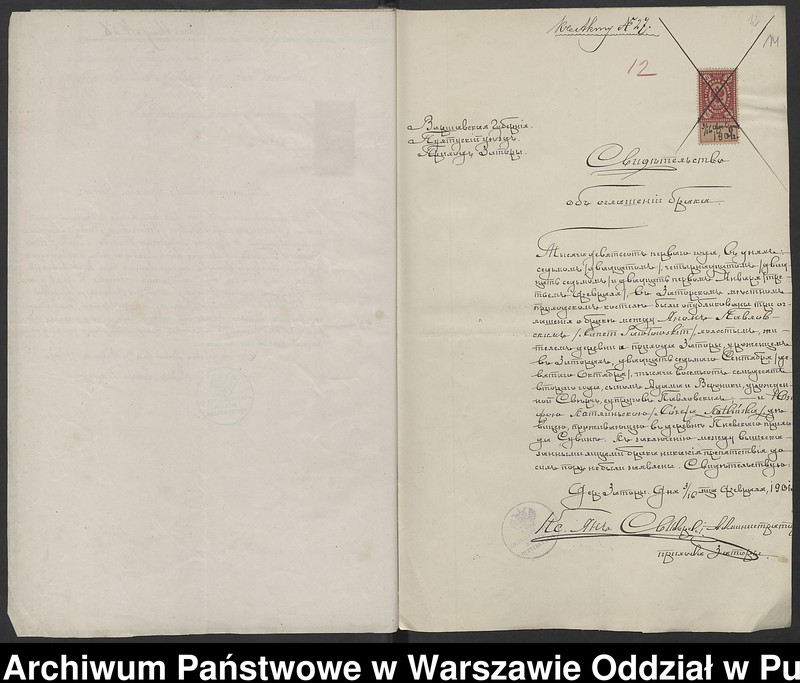 № 27.
12
14
Варшавская Губернія.
Пултускій уѣздъ.
Приходъ Заторы.
Свидѣтельство
объ оглашеніи брака.
Тысяча девятьсотъ перваго года, въ дняхъ:
седьмомъ /двадцатомъ/, четырнадцатомъ /двад-
цать седьмомъ/ и двадцать первомъ Января /тре-
тьемъ Февраля/, въ Заторскомъ мѣстномъ
приходскомъ костелѣ были опубликованы три ог-
лашенія о бракѣ между Яномъ Павлов-
скимъ /Janem Pawłowskim/ холостымъ, жи-
телемъ деревни и прихода Заторы, урожденцемъ
въ Заторахъ, двадцать седьмаго Сентября /де-
вятаго Октября/, тысяча восемьсотъ семьдесятъ
втораго года, сыномъ Адама и Вероники, урожден-
ной супруговъ Павловскихъ — и Юзе-
фою /Józefą / дѣ-
вицею, проживающею въ деревнѣ прихо-
да Къ заключенію между вышеска-
занными лицами брака никакія препятствія до
сихъ поръ не были заявлены. Свидѣтельствую:
Дер. Заторы. Дня 3/16 Февраля, 1901
Кс. Янъ Администраторъ
прихода Заторы.
Archiwum Państwowe w Warszawie Oddział w Pu